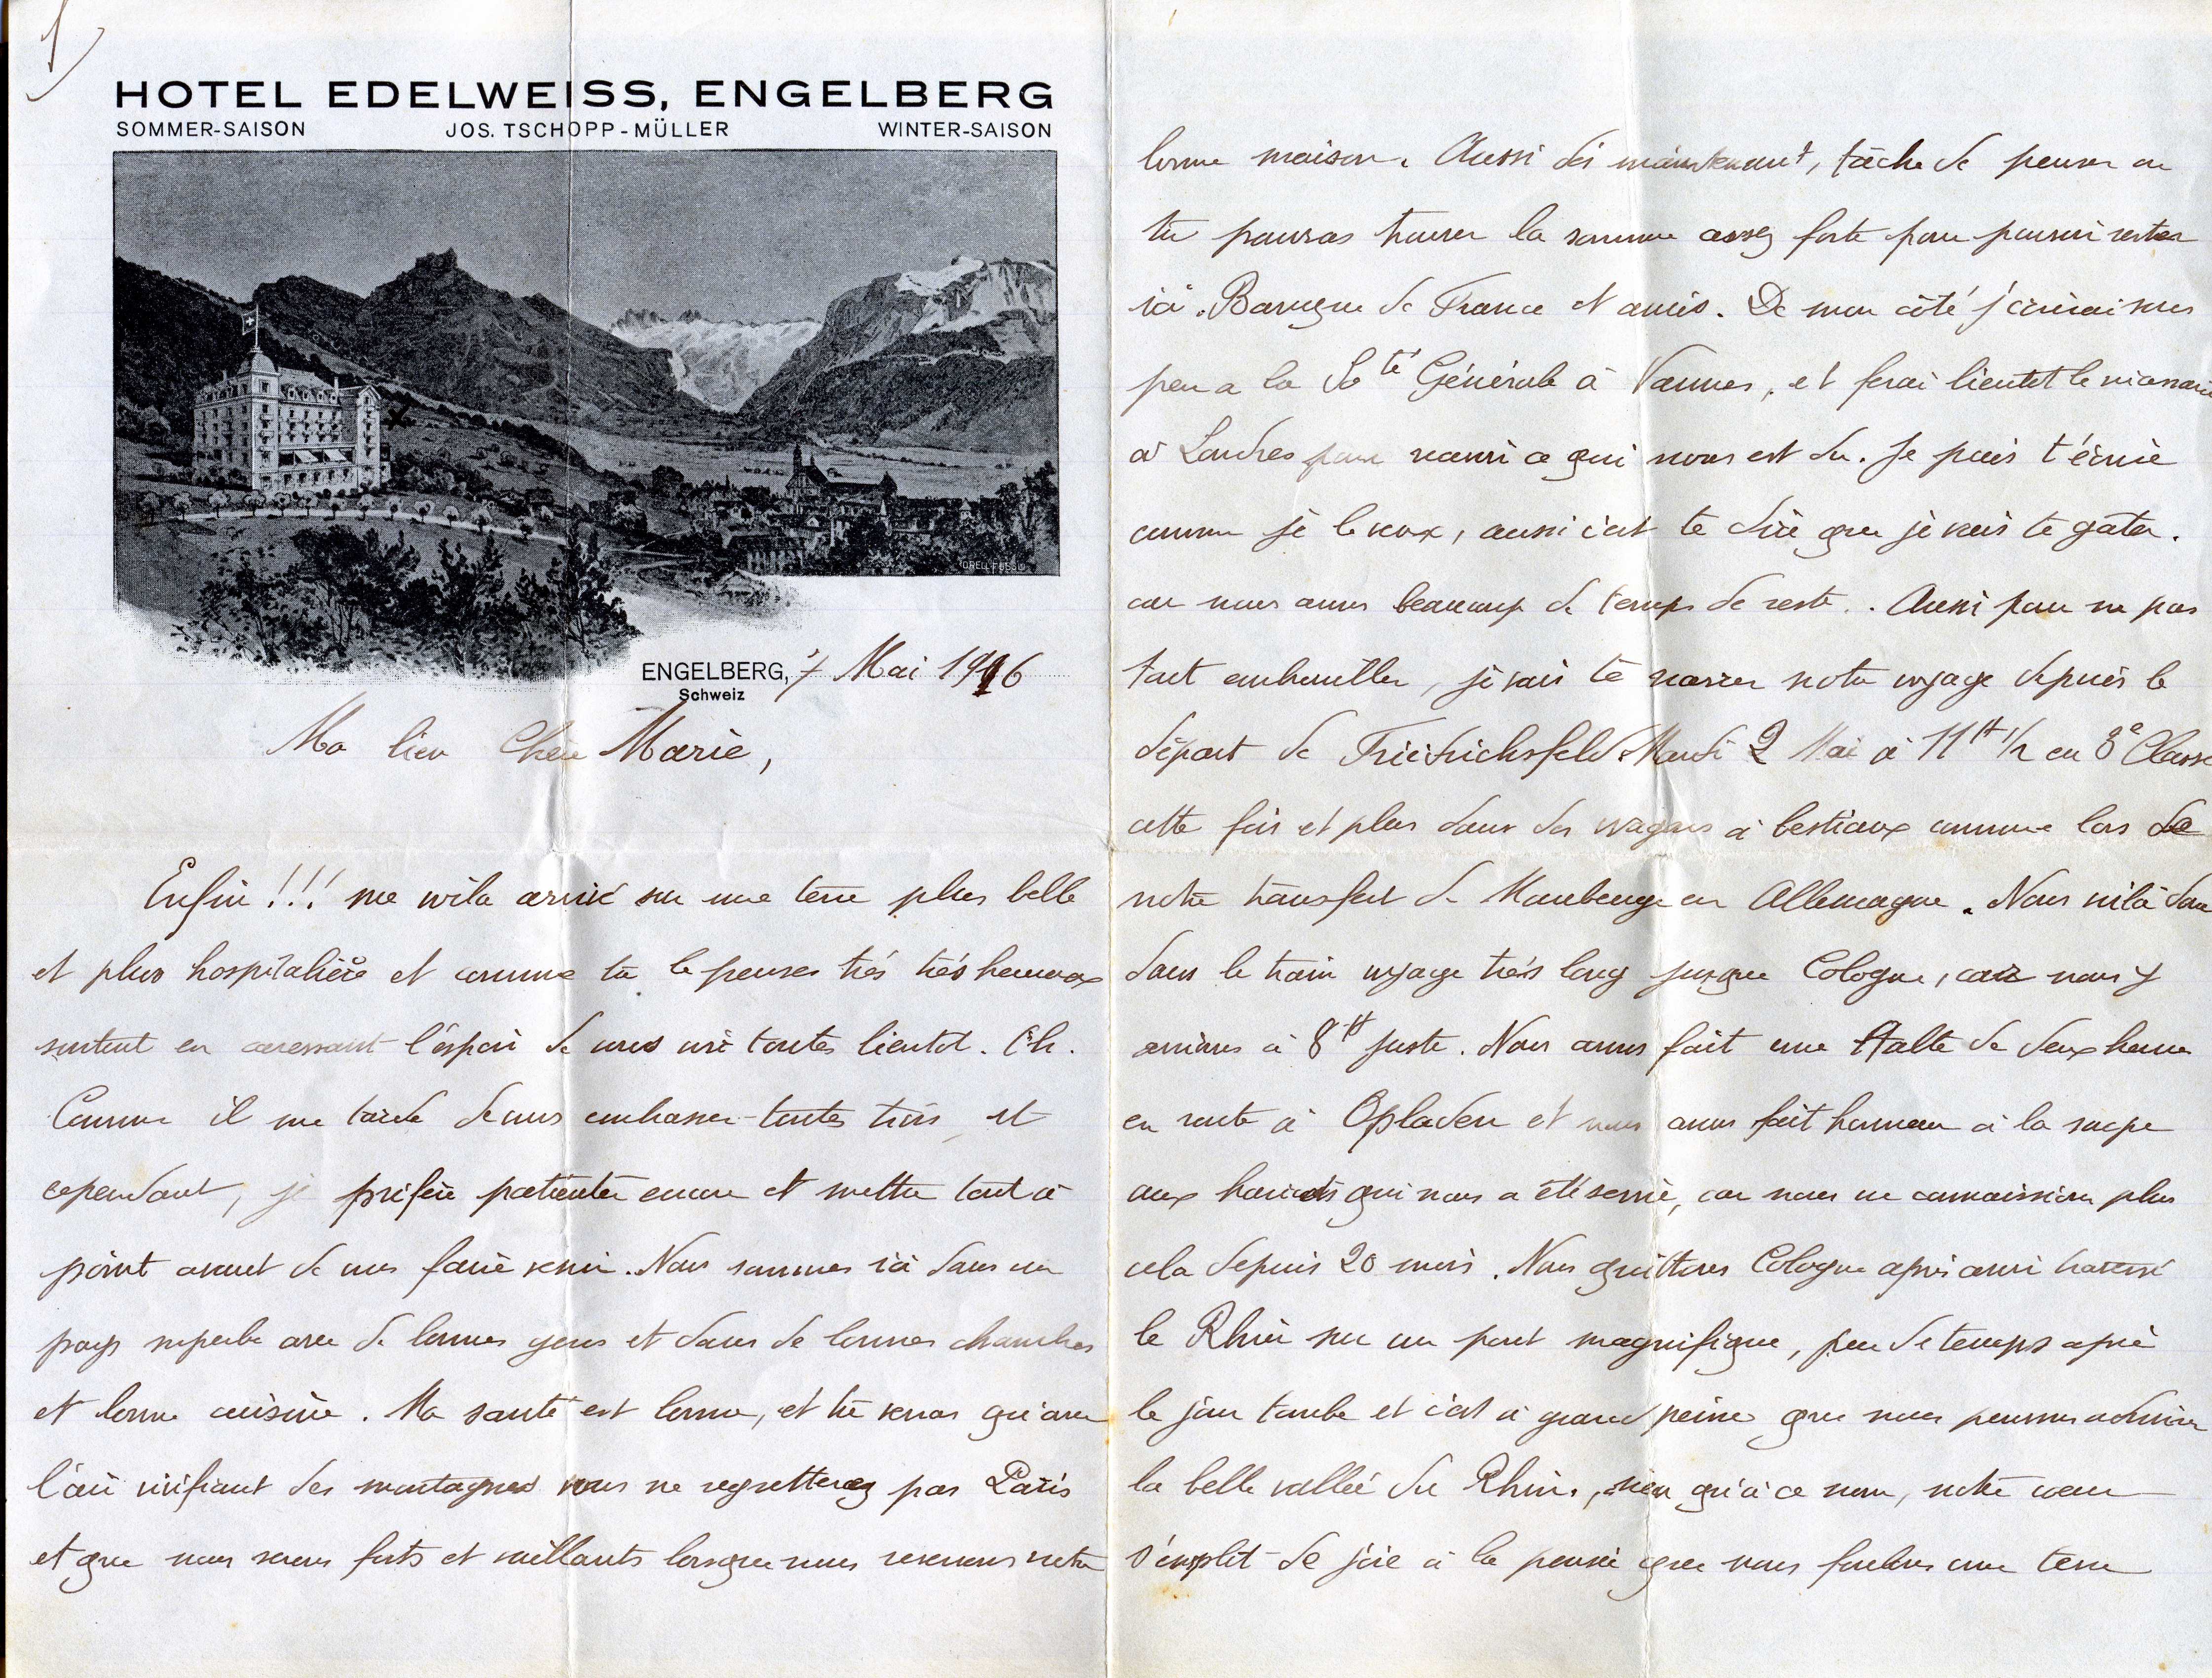 1)
HOTEL EDELWEISS, ENGELBERG
SOMMER-SAISON JOS. TSCHOPP-MÜLLER WINTER-SAISON
ORELL FÜSSLI
ENGELBERG, 7 Mai 1916
Schweiz
Ma bien Chère Marie,
Enfin!!! me voila arrivé sur une terre plus belle
et plus hospitalière et comme tu le penses très très heureux
surtout en caressant l'espoir de vous voir toutes bientot. Oh.
Comme il me tarde de vous embrasser toutes trois, et
cependant, je préfère patienter encore et mettre tout à
point avant de vous faire venir. Nous sommes ici dans un
pays superbe avec de bonnes gens et dans de bonnes chambres
et bonne cuisine. Ma santé est bonne, et tu verras qu'avec
l'air vivifiant des montagnes vous ne regretterez pas Paris
et que nous serons forts et vaillants lorsque nous reverrons notre
bonne maison. Aussi dès maintenant, tâche de penser ou
tu pourras trouver la somme assez forte pour pouvoir rester
ici. Banque de France et amis. De mon côté j'écrirai sous
peu a la Sté Générale à Vannes, et ferai bientot le nécessaire
à Londres pour ravoir ce qui nous est du. Je puis t'écrire
comme je le veux, aussi c'est te dire que je vais te gâter.
car nous avons beaucoup de temps de reste.. Aussi pour ne pas
tout embrouiller, je vais te narrer notre voyage depuis le
départ de Friedrichsfeld. Mardi 2 Mai à 11H 1/2 en 3e Classe
cette fois et plus dans des wagons à bestiaux comme lors de
notre transfert de Maubeuge en Allemagne. Nous voilà donc
dans le train voyage très long jusque Cologne, car nous y
arrivons à 8H juste. Nous avons fait une Halte de deux heures
en route à Opladen et nous avons fait honneur à la soupe
aux haricots qui nous a été servie, car nous ne connaissions plus
cela depuis 20 mois. Nous quittons Cologne après avoir traversé
le Rhin sur un pont magnifique, peu de temps après
le jour tombe et c'est à grand peine que nous pouvons admirer
la belle vallée du Rhin, rien qu'à ce nom, notre coeur
s'emplit de joie à la pensée que nous foulons une terre